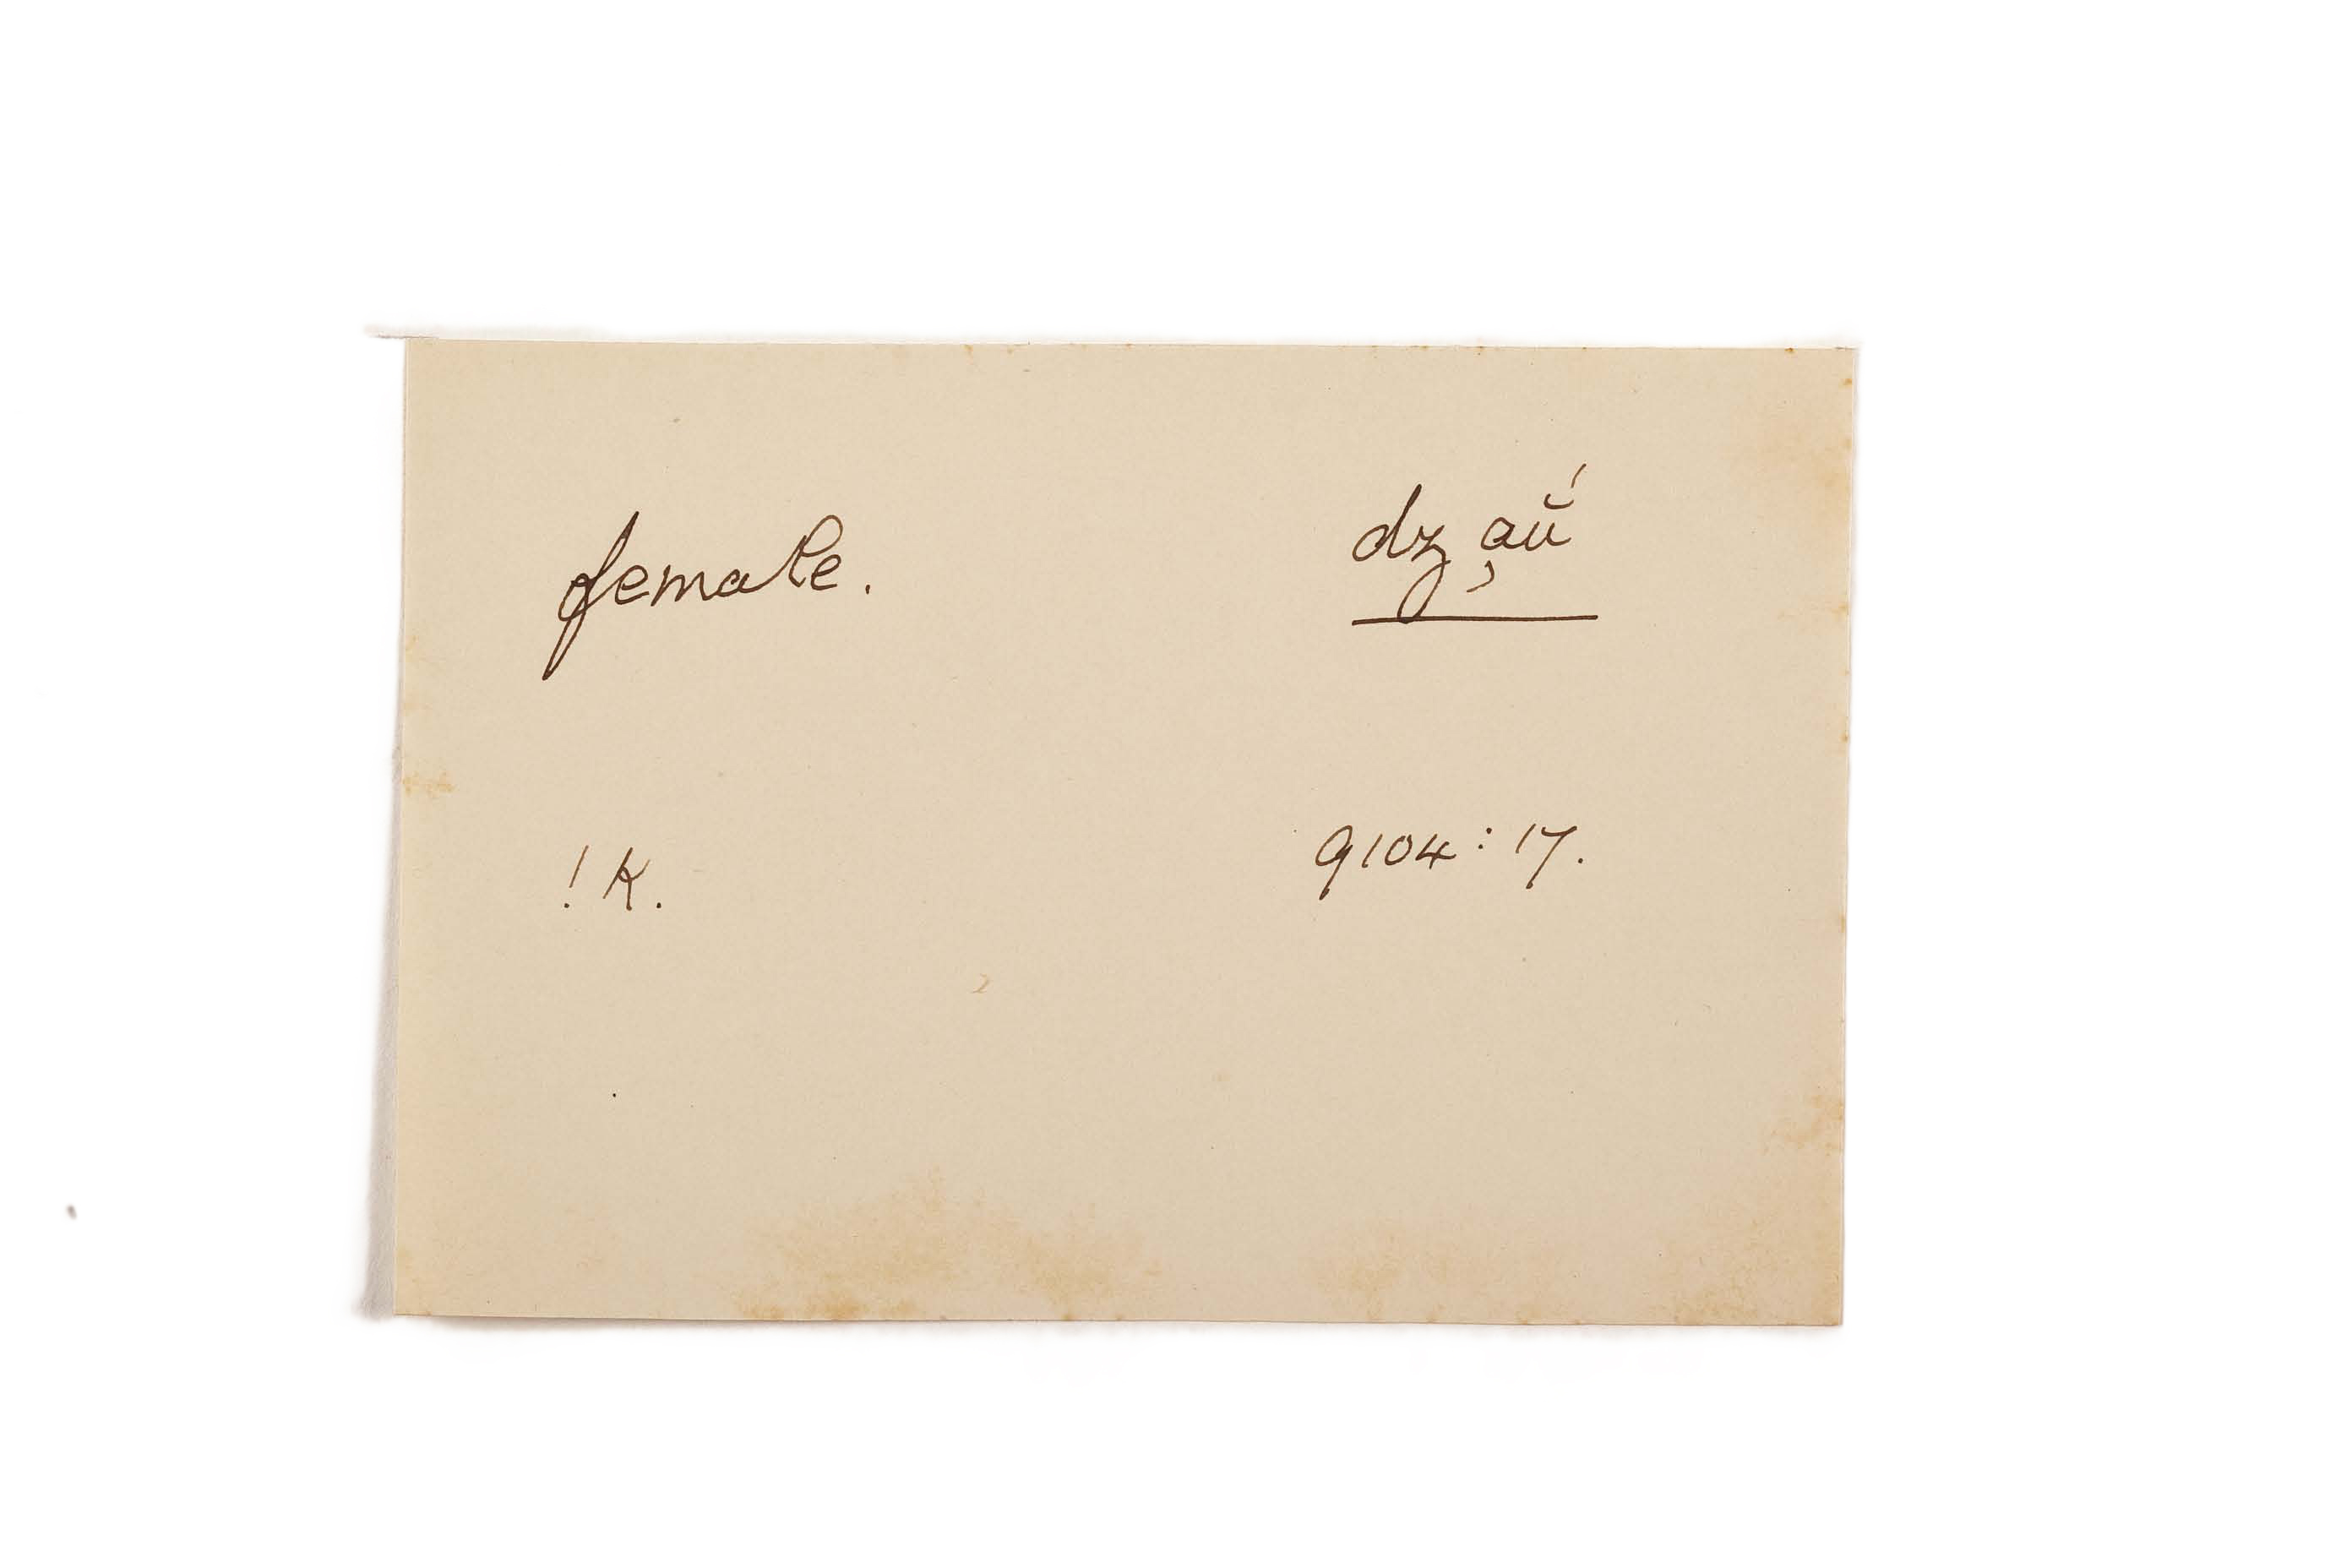 female. dz̦ ąŭ́
! K. 9104 : 17.